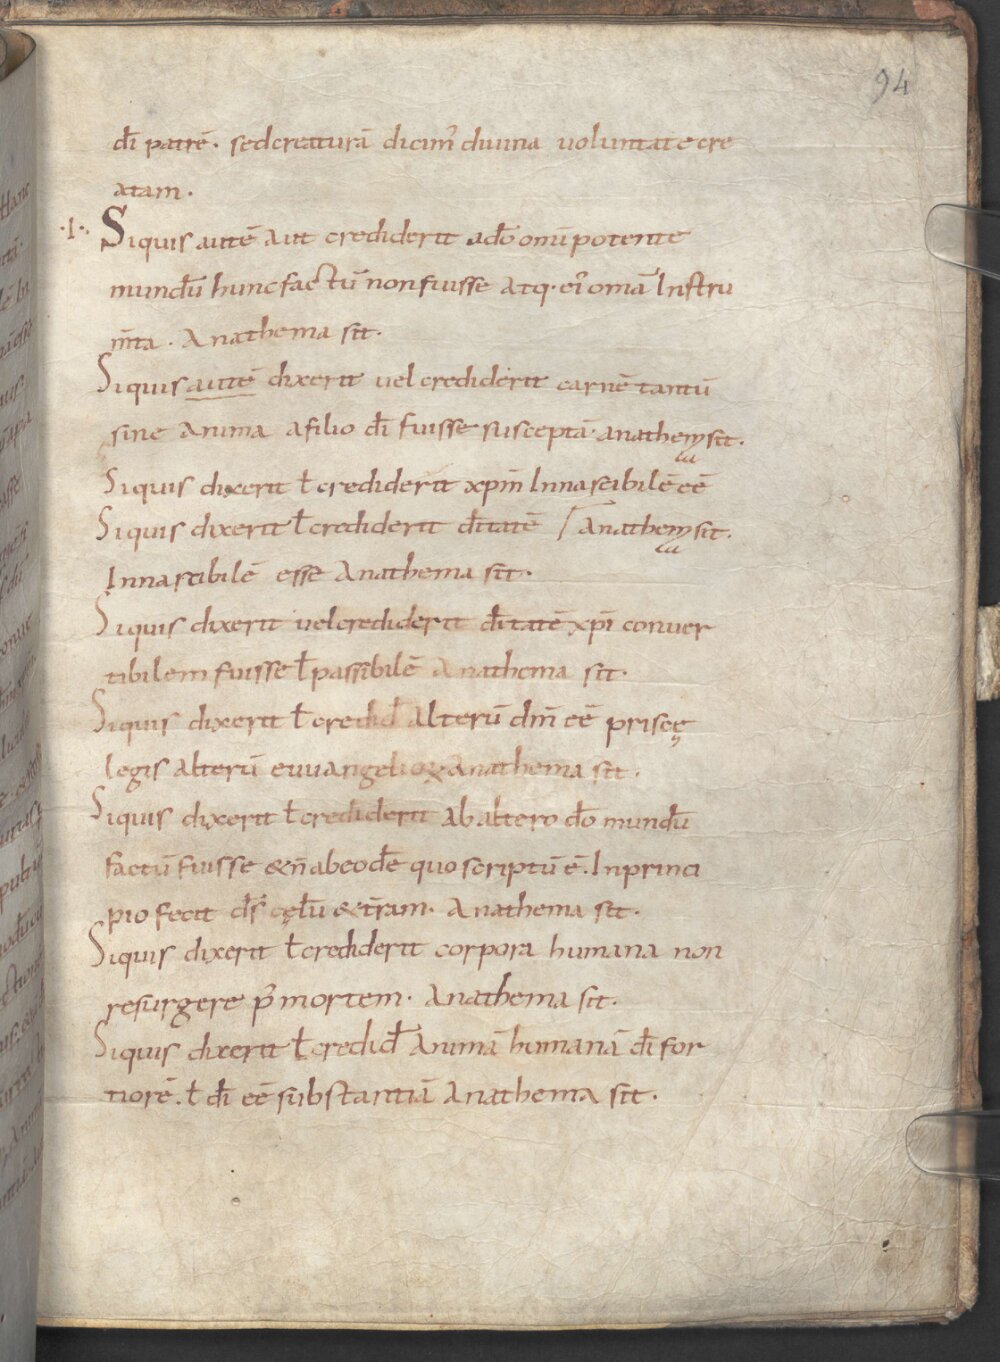 94
dī patrē · sed creaturā dicim᷒ diuina uoluntate cre
atam ·
·I· Siquis autē aut crediderit adō omīpotente
mundū hunc factū non fuisse atq· eī omā Instru
m̄ta · Anathema sit·
Siquis autē dixerit uel crediderit carnē tantū
sine anima afilio dī fuisse susceptā· anathem sit·
a
Siquis dixerit ł crediderit xpm̄ Innascibilē eē
Siquis dixerit ł crediderit dītatē / Anathem sit·
a
Innascibilē esse Anathema sit·
Siquis dixerit uel crediderit dītatē xpī conuer
tibilem fuisse ł passibilē Anathema sit·
Siquis dixerit ł credid̄ alterū dm̄ eē priscę
legis alterū euuangeliorꝝ Anathema sit·
Siquis dixerit ł crediderit ab altero dō mundū
factū fuisse &n̄ abeodē quo scriptū ē· Inprinci
pio fecit ds̄ cęlū & tr̄am· Anathema sit·
Siquis dixerit ł crediderit corpora humana non
resurgere p᷒ mortem· Anathema sit·
Siquis dixerit ł credid̄ animā humanā dī por
tionē· ł dī eē substantiā Anathema sit·